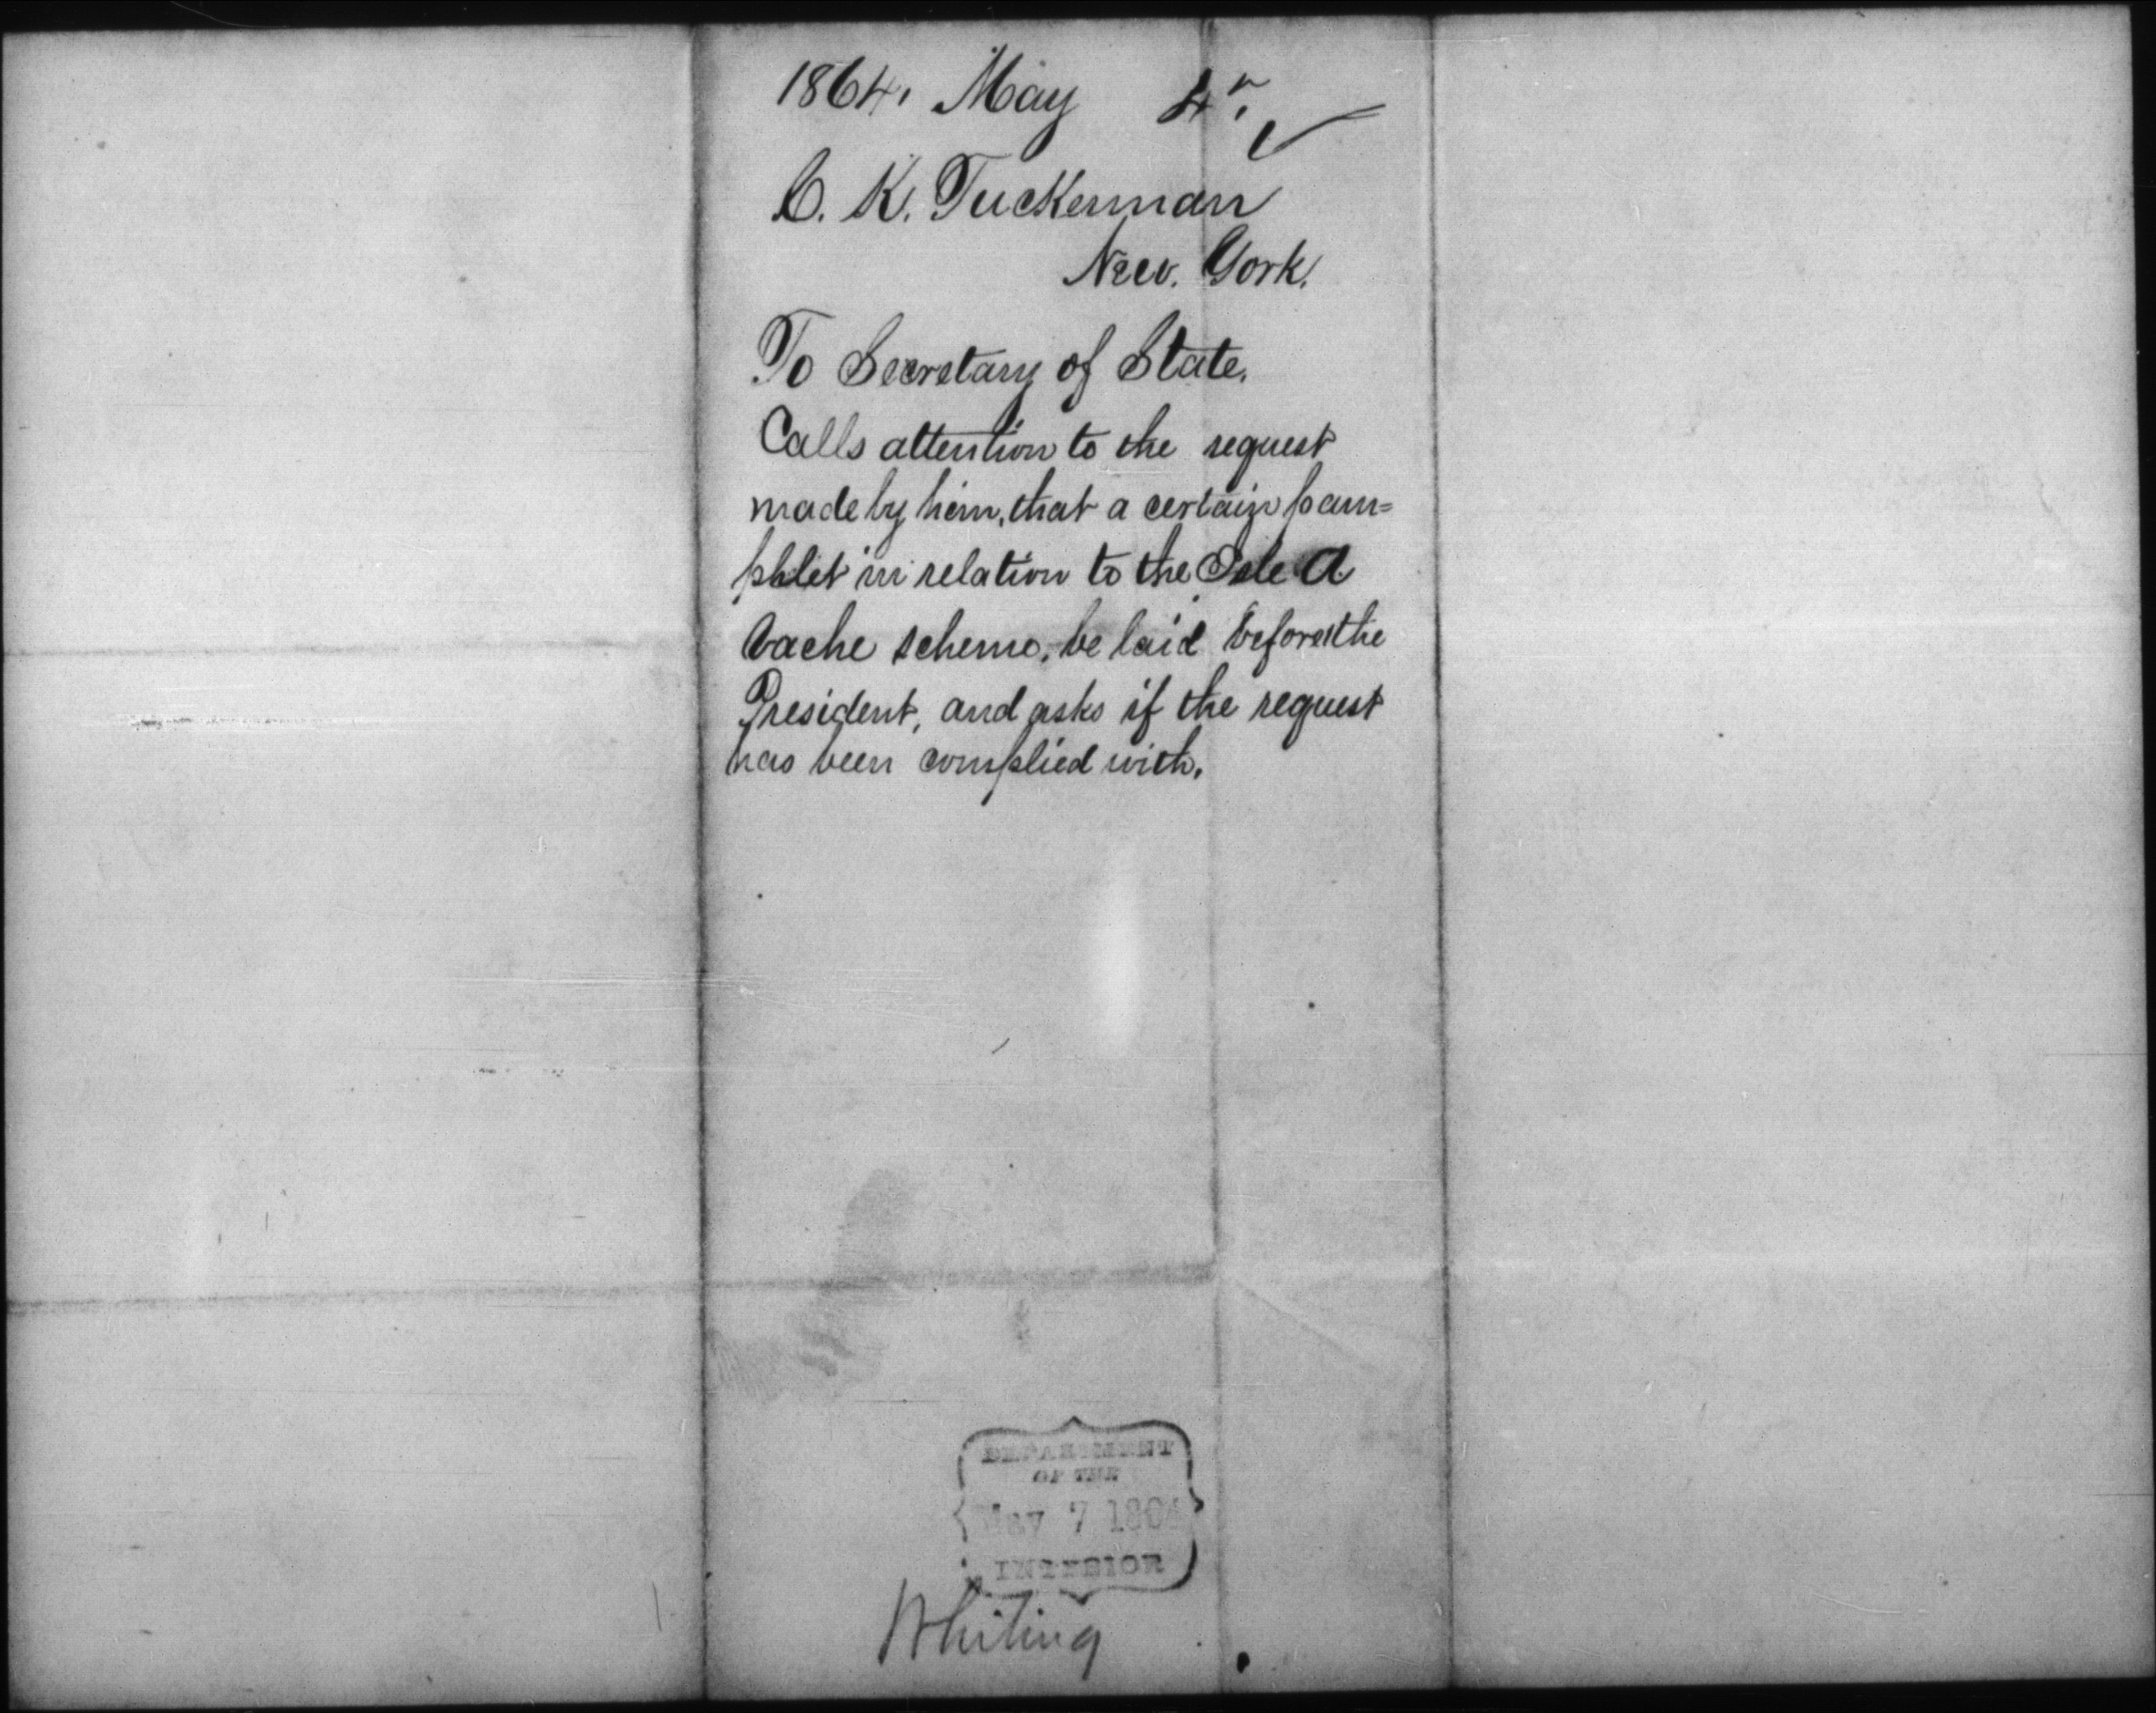 1864. May 4".
C. K. Tuckerman
New. York.
To Secretary of State.
Calls attention to the request
made by him, that a certain pam=
phlet in relation to the Isle A
Vache scheme, be laid before the
President, and asks if the request
has been complied with.
DEPARTMENT
OF THE
May 7 1864
INTERIOR
Whiting